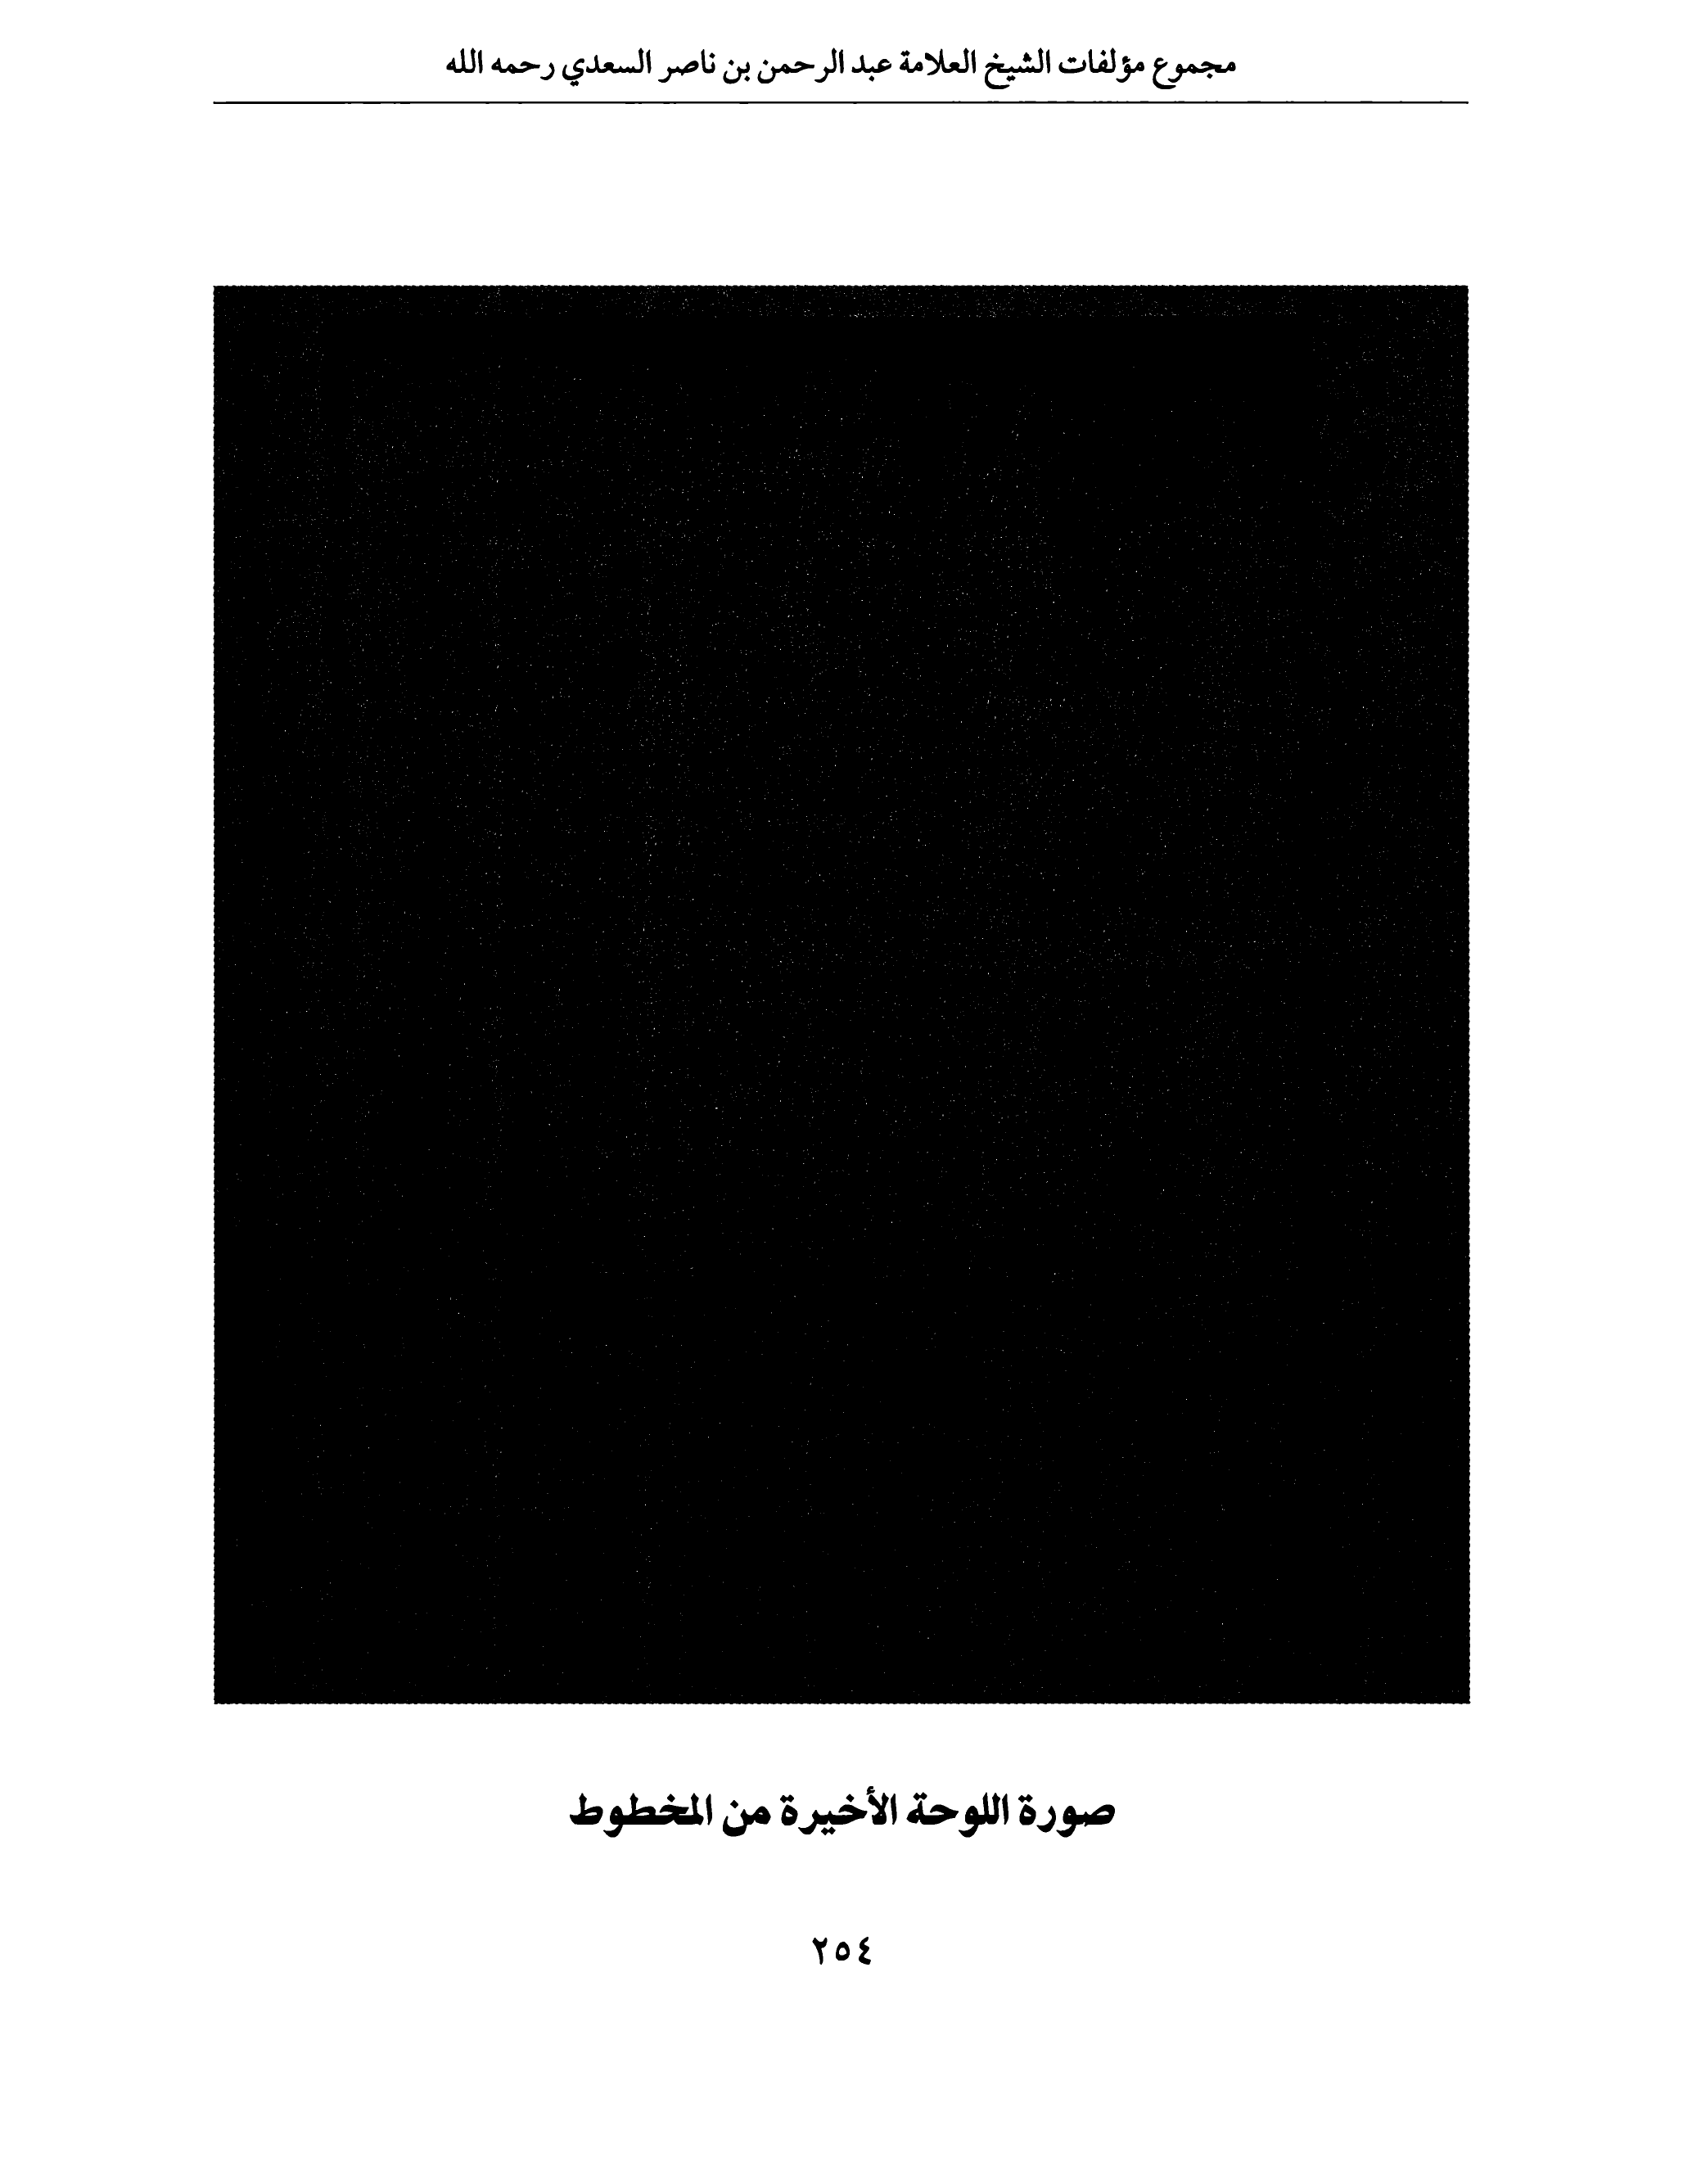 مجموع مؤلفات الشيخ العلامة عبد الرحمن بن ناصر السعدي رحمه الله
صورة اللوحة الأخيرة من المخطوط
٢٥٤